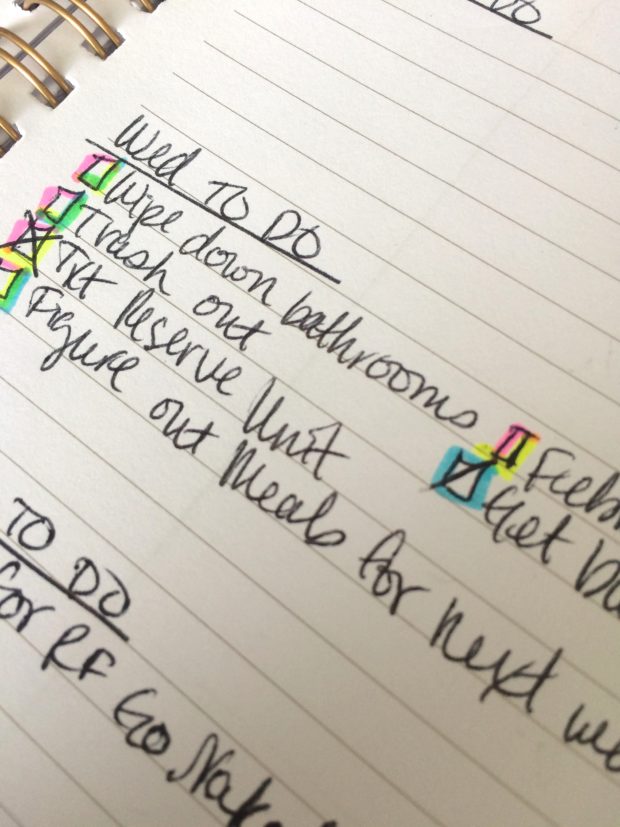 DO
Wed TO DO
Wipe down bathrooms
Trash out
Txt Reserve Unit
Get
Figure out Meals for next
TO DO
for RF Go